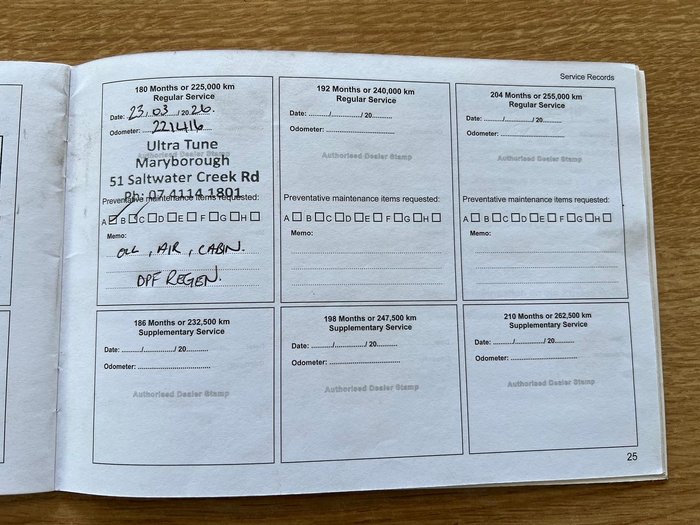 Service Records
180 Months or 225,000 km
Regular Service
Date: 23, 03 / 20 26.
Odometer: 221416
Authorised Dealer Stamp
Ultra Tune
Maryborough
51 Saltwater Creek Rd
Ph: 07 4114 1801
Preventative maintenance items requested:
A B C D E F G H
Memo:
OIL, AIR, CABIN.
DPF REGEN.
192 Months or 240,000 km
Regular Service
Date: ........./............/ 20..........
Odometer: ................................
Authorised Dealer Stamp
Preventative maintenance items requested:
A B C D E F G H
Memo:
204 Months or 255,000 km
Regular Service
Date: ........./............/ 20..........
Odometer: ................................
Authorised Dealer Stamp
Preventative maintenance items requested:
A B C D E F G H
Memo:
186 Months or 232,500 km
Supplementary Service
Date: ........./............/ 20..........
Odometer: ................................
Authorised Dealer Stamp
198 Months or 247,500 km
Supplementary Service
Date: ........./............/ 20..........
Odometer: ................................
Authorised Dealer Stamp
210 Months or 262,500 km
Supplementary Service
Date: ........./............/ 20..........
Odometer: ................................
Authorised Dealer Stamp
25